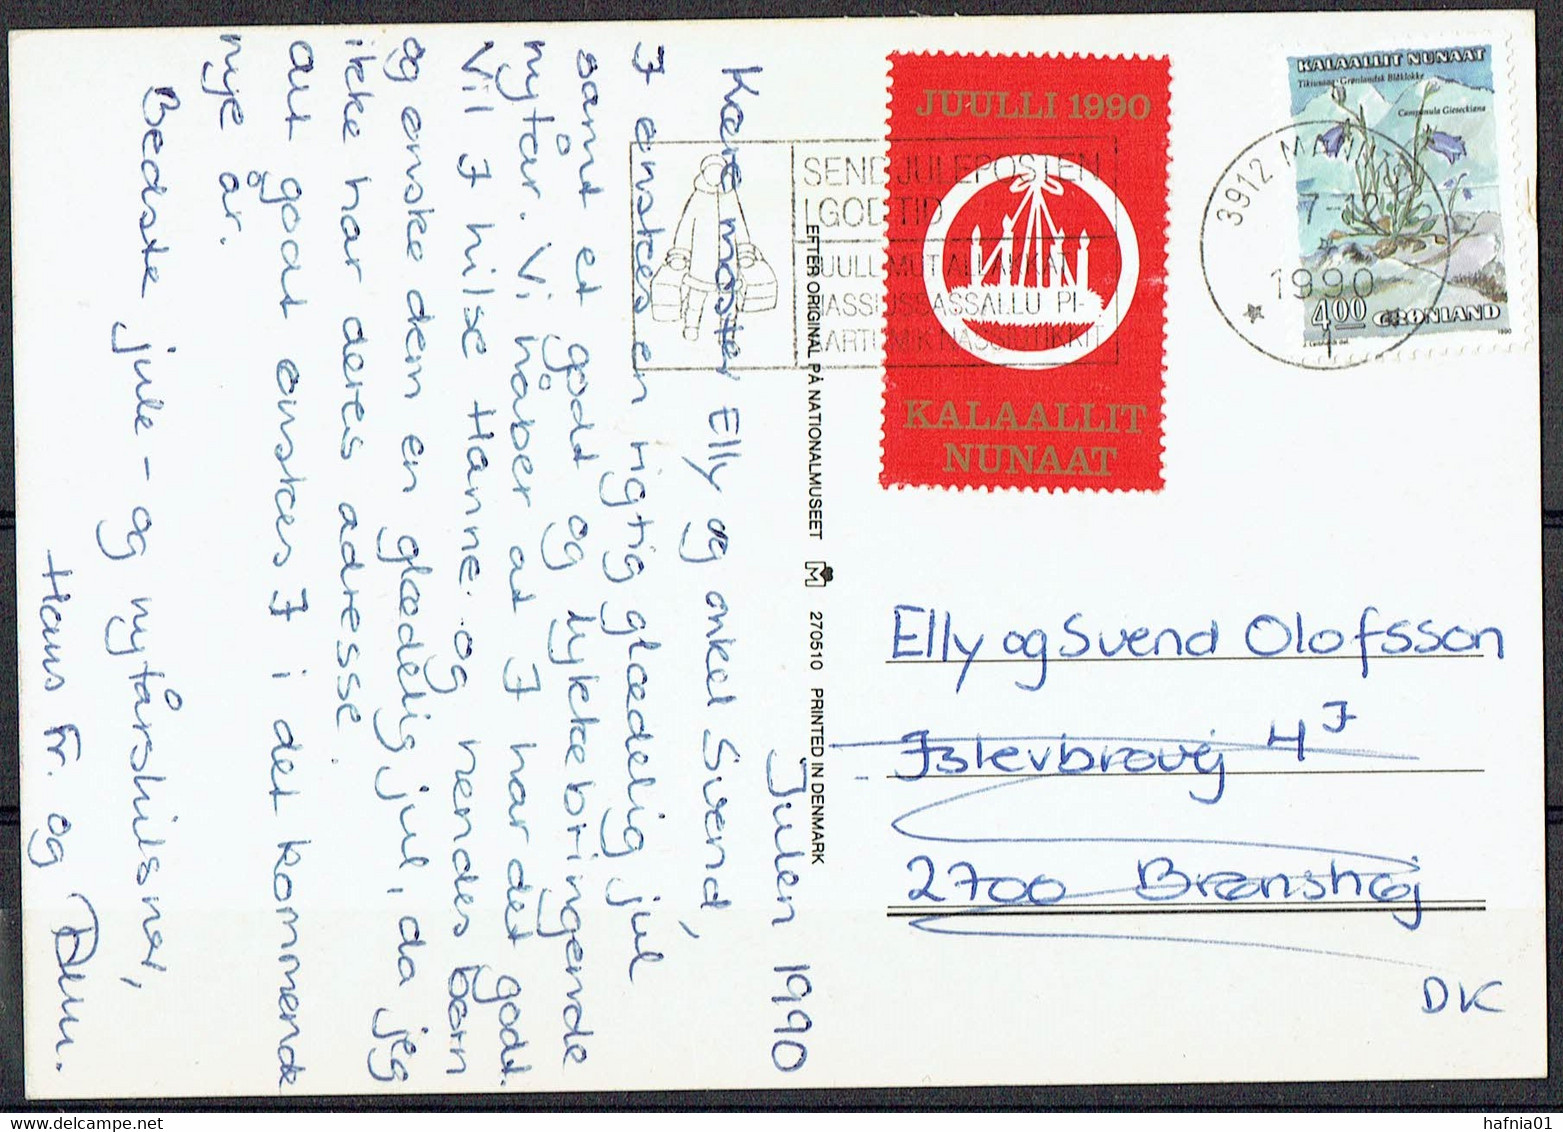 Julen 1990
Kære moster Elly og onkel Svend,
I ønskes en rigtig glædelig jul
samt et godt og lykkebringende
nytår. Vi håber at I har det godt.
Vil I hilse Hanne og hendes børn
og ønske dem en glædelig jul, da jeg
ikke har deres adresse.
Alt godt ønskes I i det kommende
nye år.
Bedste jule- og nytårshilsner,
Hans Fr. og
EFTER ORIGINAL PÅ NATIONALMUSEET M 270510 PRINTED IN DENMARK
SEND JULEPOSTEN
I GOD TID
JUULLI 1990
KALAALLIT
NUNAAT
KALAALLIT NUNAAT
Tikiusaaq-Grønlandsk Blåklokke
Campanula Gieseckiana
4.00 GRØNLAND
1990
3912
1990
1
Elly og Svend Olofsson
Islevbrovej 4
2700 Brønshøj
DK
hafnia01